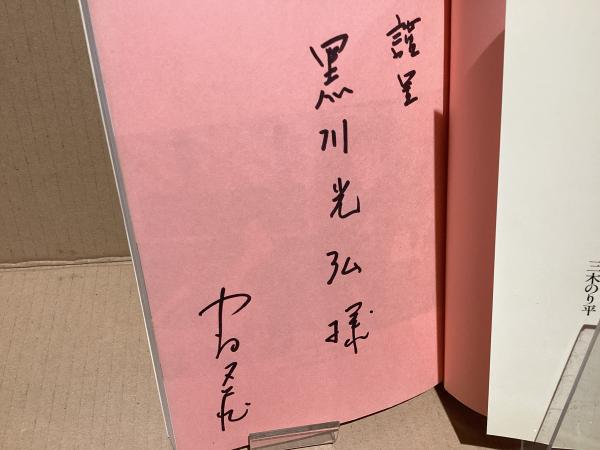 三木のり平
謹呈
黒川光弘様